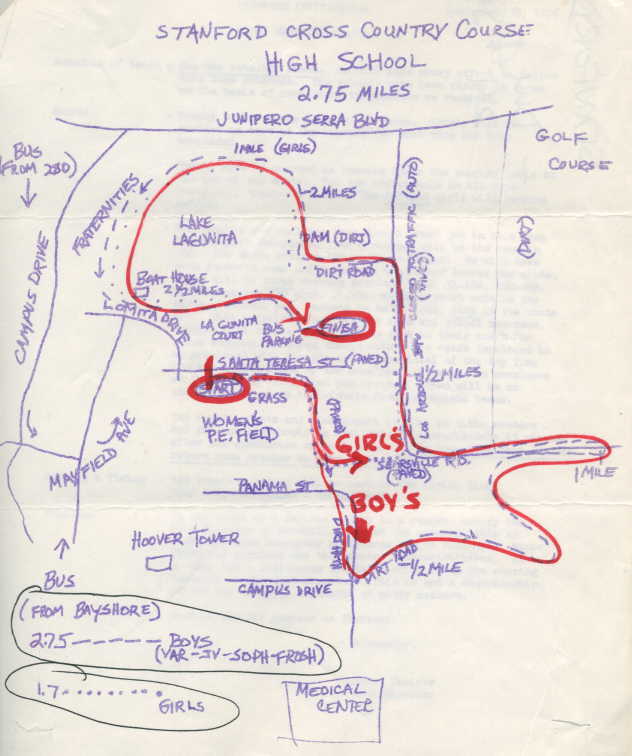 STANFORD CROSS COUNTRY COURSE
HIGH SCHOOL
2.75 MILES
JUNIPERO SERRA BLVD
GOLF
COURSE
BUS
(FROM 280)
1 MILE (GIRLS)
2 MILES
FRATERNITIES
LAKE
LAGUNITA
DAM (DIRT)
DIRT ROAD
CLOSED TO TRAFFIC (AUTO)
(DIRT)
CAMPUS DRIVE
BOAT HOUSE
2 1/2 MILES
LOMITA DRIVE
LAGUNITA
COURT
BUS
PARKING
FINISH
SANTA TERESA ST (PAVED)
START
GRASS
1 1/2 MILES
WOMEN'S
P.E. FIELD
GIRL'S
SEARSVILLE RD.
(PAVED)
1 MILE
MAYFIELD AVE
PANAMA ST
BOY'S
HOOVER TOWER
DIRT ROAD
1/2 MILE
CAMPUS DRIVE
BUS
(FROM BAYSHORE)
2.75 BOYS
(VAR-JV-SOPH-FROSH)
1.7 GIRLS
MEDICAL
CENTER